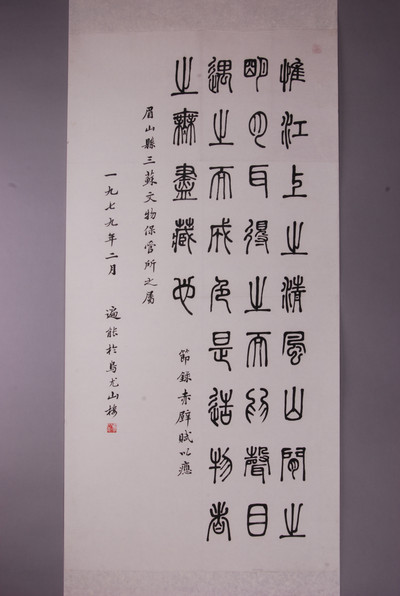 惟江上之清風山間之
明月耳得之而為聲目
遇之而成色是造物者
之無盡藏也
節錄赤壁賦以應
眉山縣三蘇文物保管所之屬
一九七九年二月 遍能於烏尤山樓